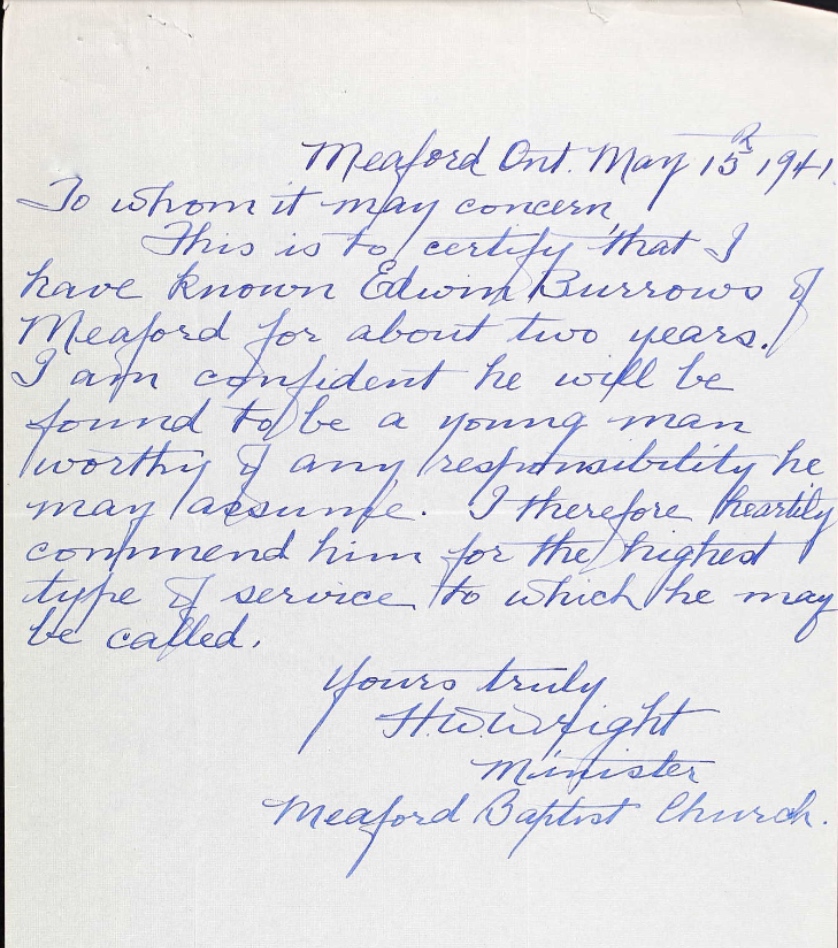 Meaford Ont. May 15th 1941.
To whom it may concern,
This is to certify that I
have known Edwin Burrows of
Meaford for about two years.
I am confident he will be
found to be a young man
worthy of any responsibility he
may assume. I therefore heartily
commend him for the highest
type of service to which he may
be called.
Yours truly
H.W. Wright
Minister
Meaford Baptist Church.